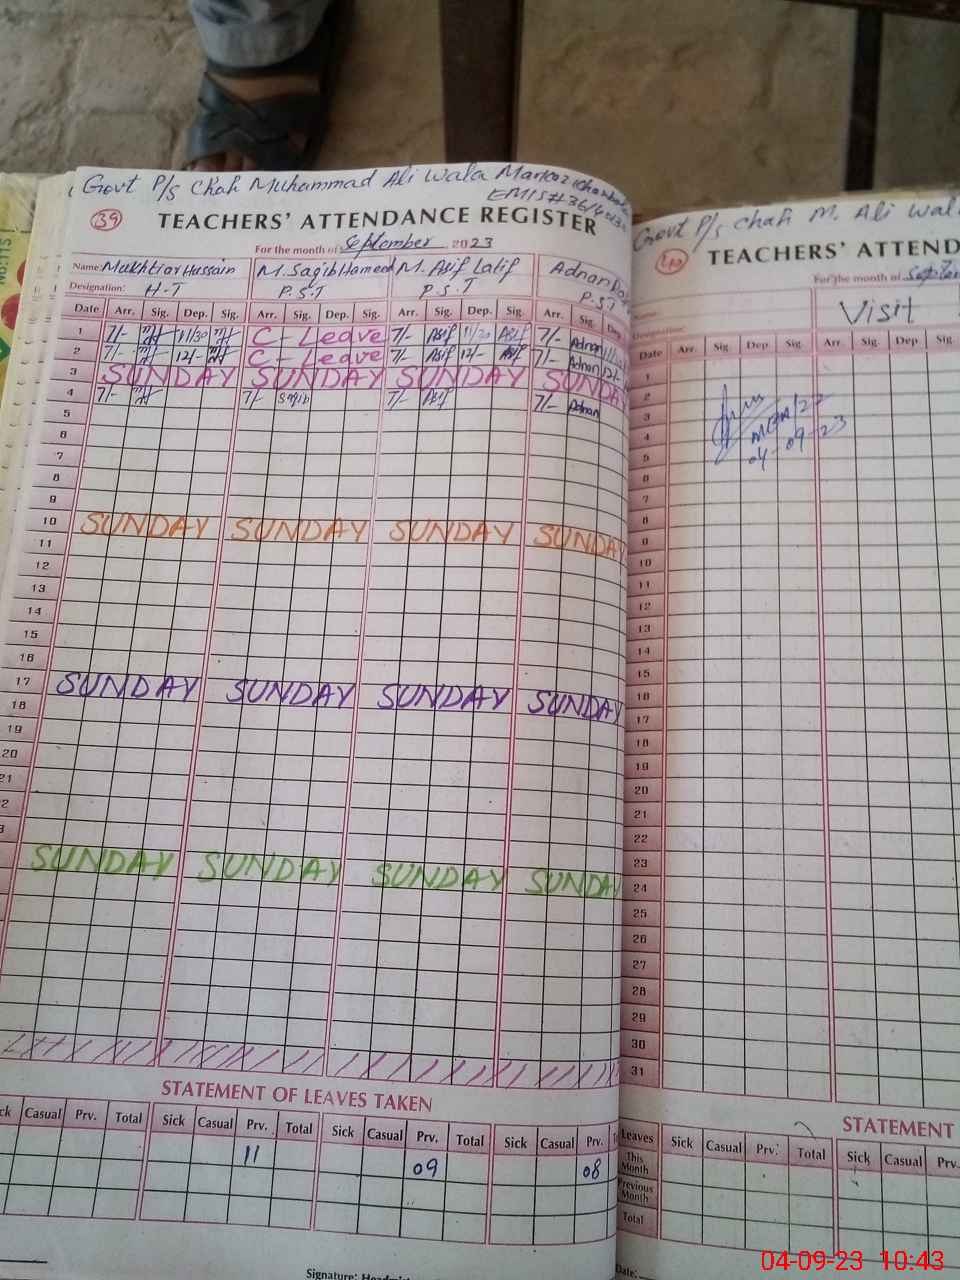 Govt P/s Chah Muhammad Ali Wala Markaz
EMIS#
39
TEACHERS' ATTENDANCE REGISTER
For the month of September 2023
Name: Mukhtiar Hussain M. Saqib Hameed M. Asif Latif Adnan
Designation: H-T P.S.T P.S.T P.S.T
Date Arr. Sig. Dep. Sig. Arr. Sig. Dep. Sig. Arr. Sig. Dep. Sig. Arr. Sig. Dep.
1 7/- 11/30 C - Leave 7/- Asif 11/30 Asif 7/- Adnan
2 7/- 12/- C - Leave 7/- Asif 12/- Asif 7/- Adnan 12/-
3 SUNDAY SUNDAY SUNDAY SUNDAY
4 7/- 7/- Saqib 7/- Asif 7/- Adnan
5
6
7
8
9
10 SUNDAY SUNDAY SUNDAY SUNDAY
11
12
13
14
15
16
17 SUNDAY SUNDAY SUNDAY SUNDAY
18
19
20
21
SUNDAY SUNDAY SUNDAY SUNDAY
STATEMENT OF LEAVES TAKEN
Casual Prv. Total Sick Casual Prv. Total Sick Casual Prv. Total Sick Casual Prv.
11 09 08
Signature:
Govt P/s Chah M. Ali
40
TEACHERS' ATTEND
For the month of
Visit
Designation:
Date Arr. Sig. Dep. Sig. Arr. Sig. Dep.
1
2
3
4
5
04-09-23
6
7
8
9
10
11
12
13
14
15
16
17
18
19
20
21
22
23
24
25
26
27
28
29
30
31
STATEMENT
Leaves Sick Casual Prv. Total Sick Casual Prv.
This Month
Previous Month
Total
Date:
04-09-23 10:43